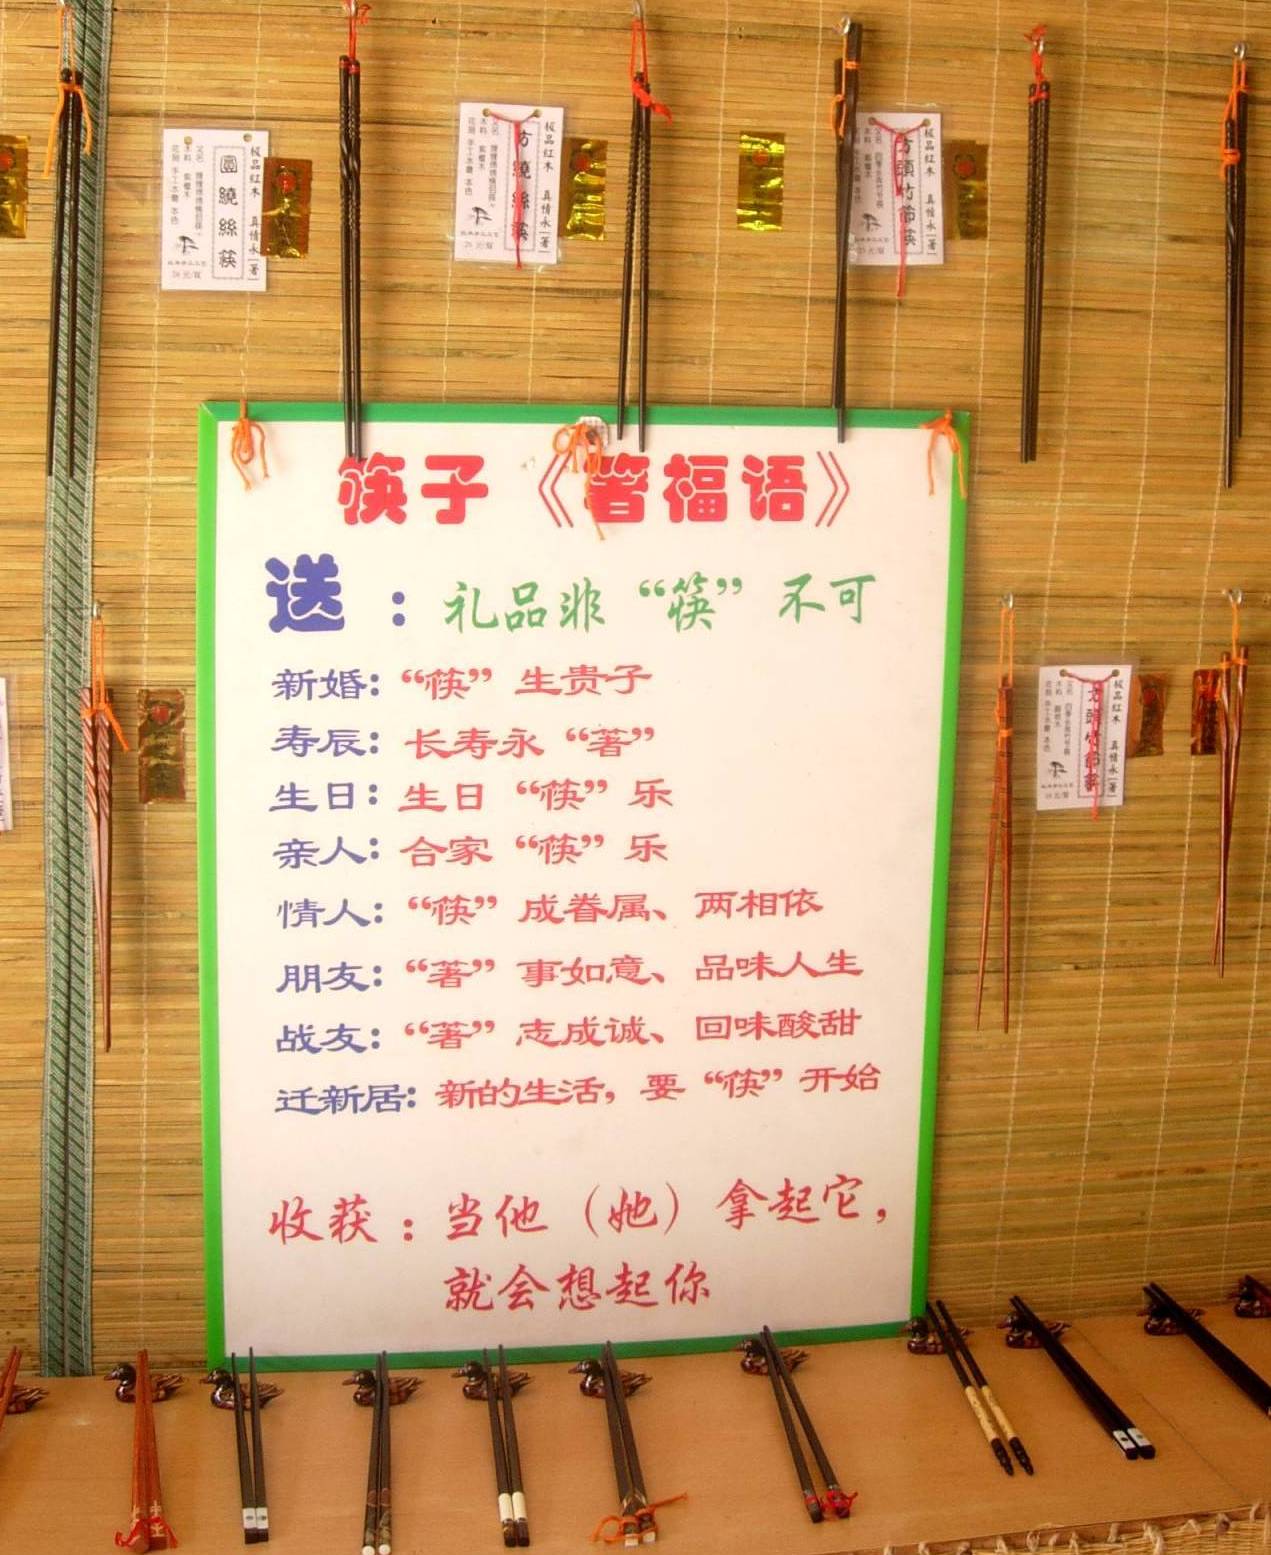 极品红木 真情永【箸】
圆绕丝筷
极品红木 真情永【箸】
方绕丝筷
极品红木
方頭竹節筷
筷子《箸福语》
送：礼品非“筷”不可
新婚：“筷”生贵子
寿辰：长寿永“著”
生日：生日“筷”乐
亲人：合家“筷”乐
情人：“筷”成眷属、两相依
朋友：“著”事如意、品味人生
战友：“著”志成诚、回味酸甜
迁新居：新的生活，要“筷”开始
收获：当他（她）拿起它，
就会想起你
极品红木 真情永【箸】
方頭竹節筷